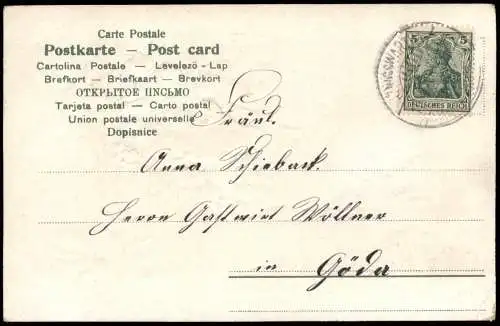 Carte Postale
Postkarte — Post card
Cartolina Postale — Levelező - Lap
Brefkort — Briefkaart — Brevkort
ОТКРЫТОЕ ПИСЬМО
Tarjeta postal — Carto postal
Union postale universelle
Dopisnice
5 5
DEUTSCHES REICH
Fräul.
Anna Schieback.
Herrn Gastwirt Wöllner
in Göda